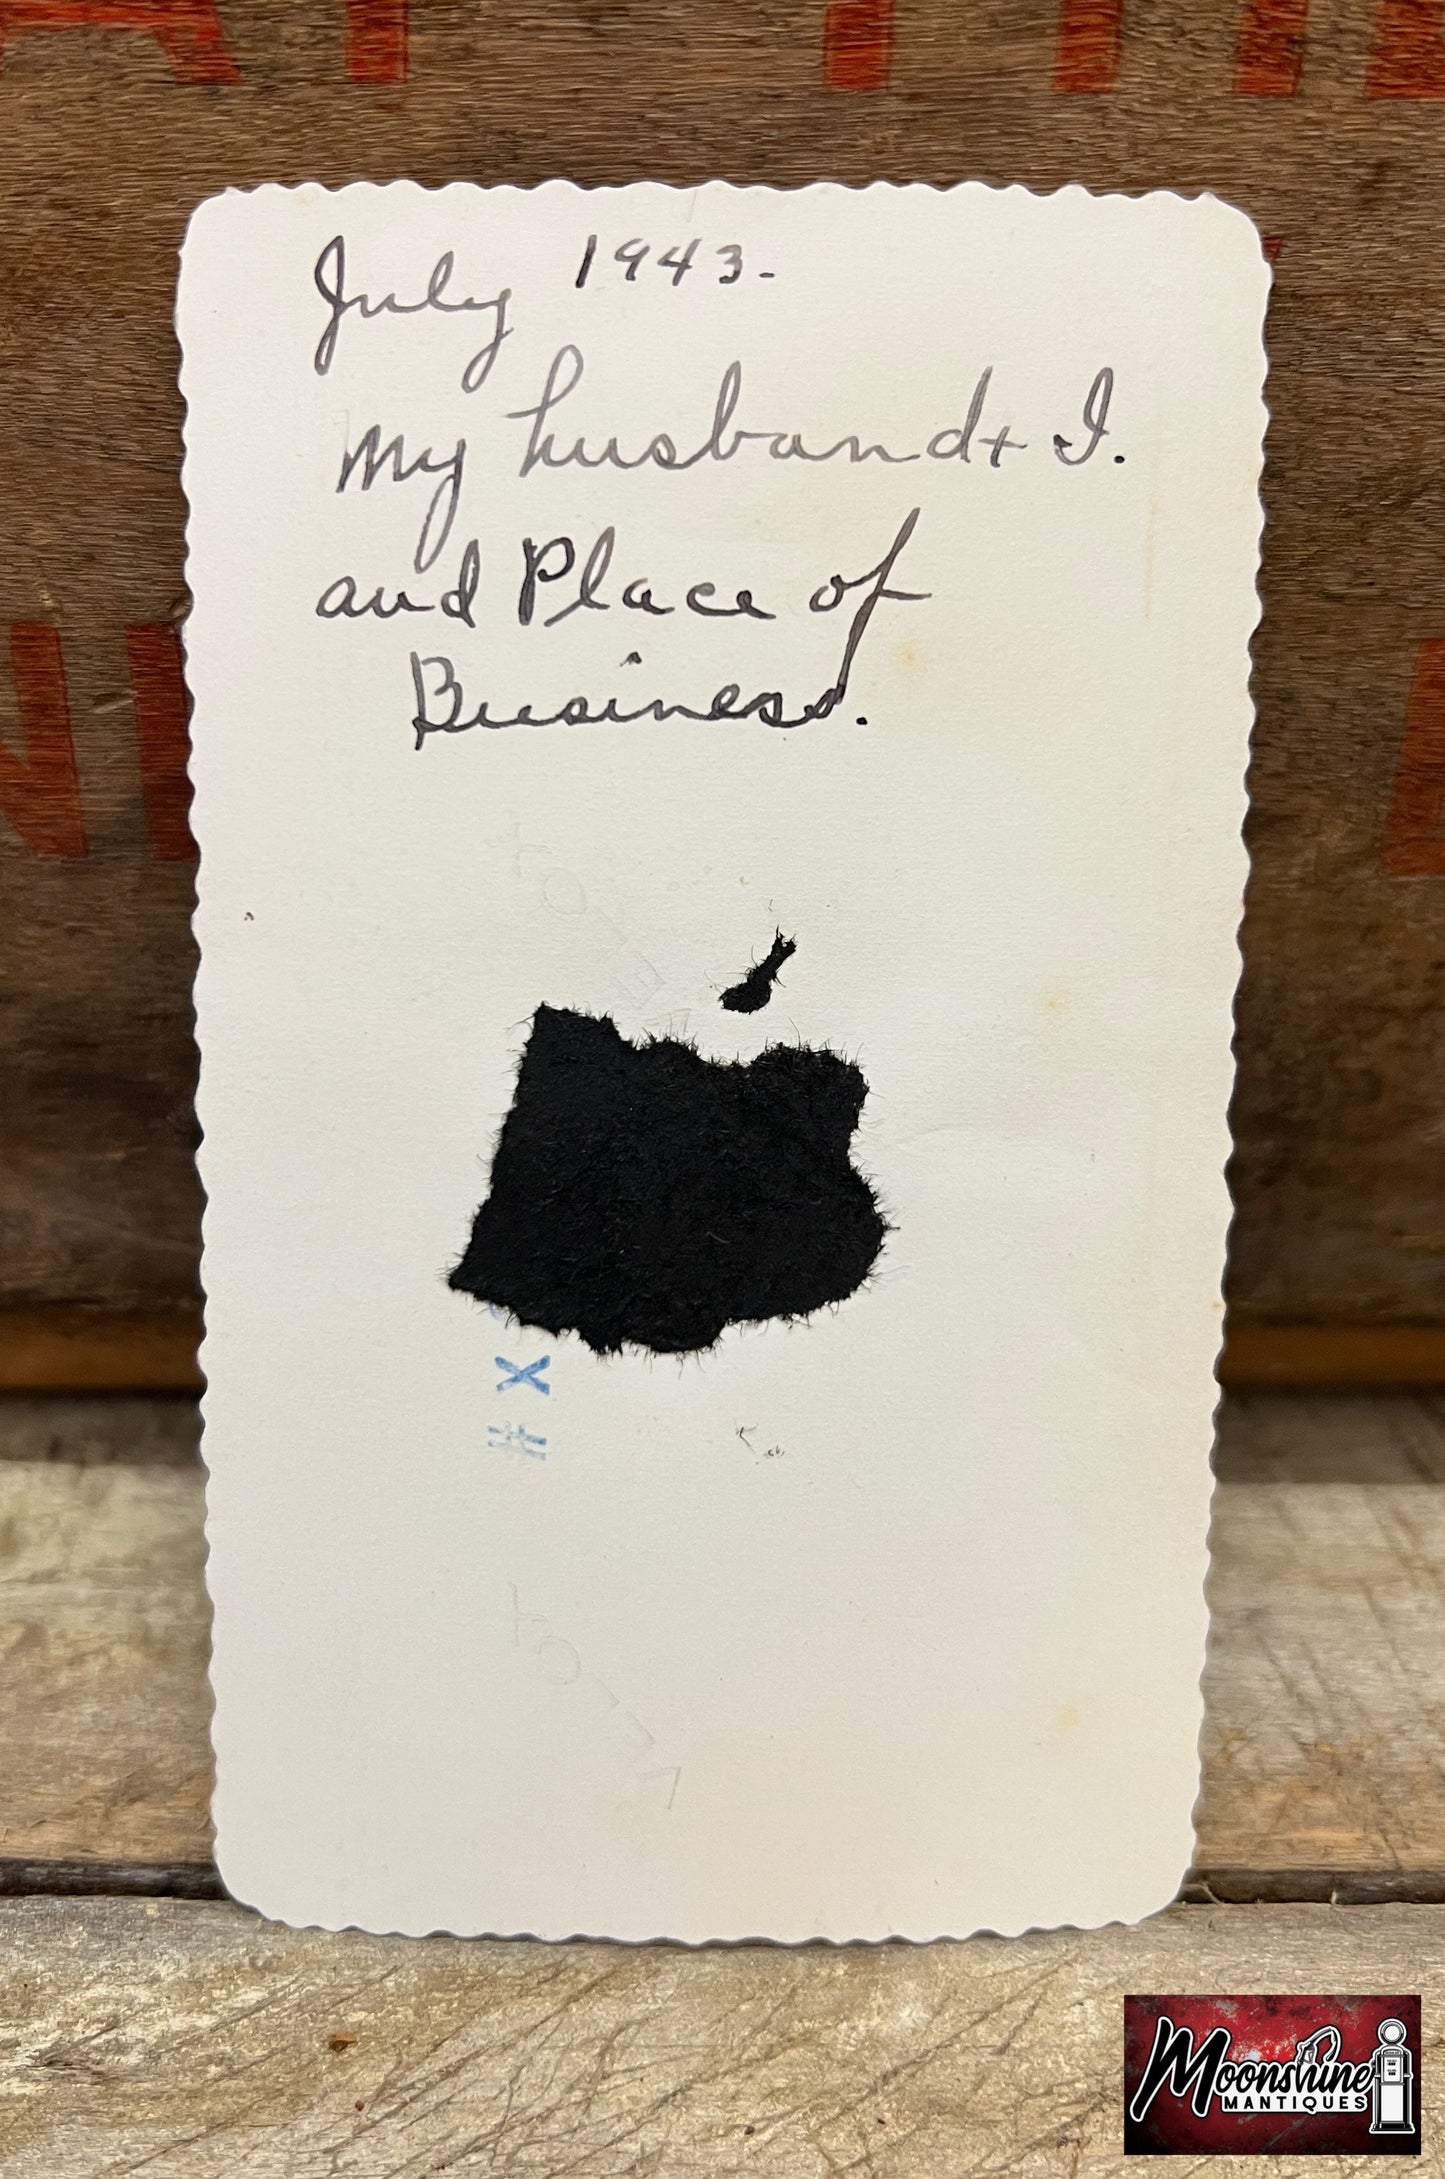 July 1943.
My husband + I.
and Place of
Business.
# X
VELOX
Moonshine
MANTIQUES